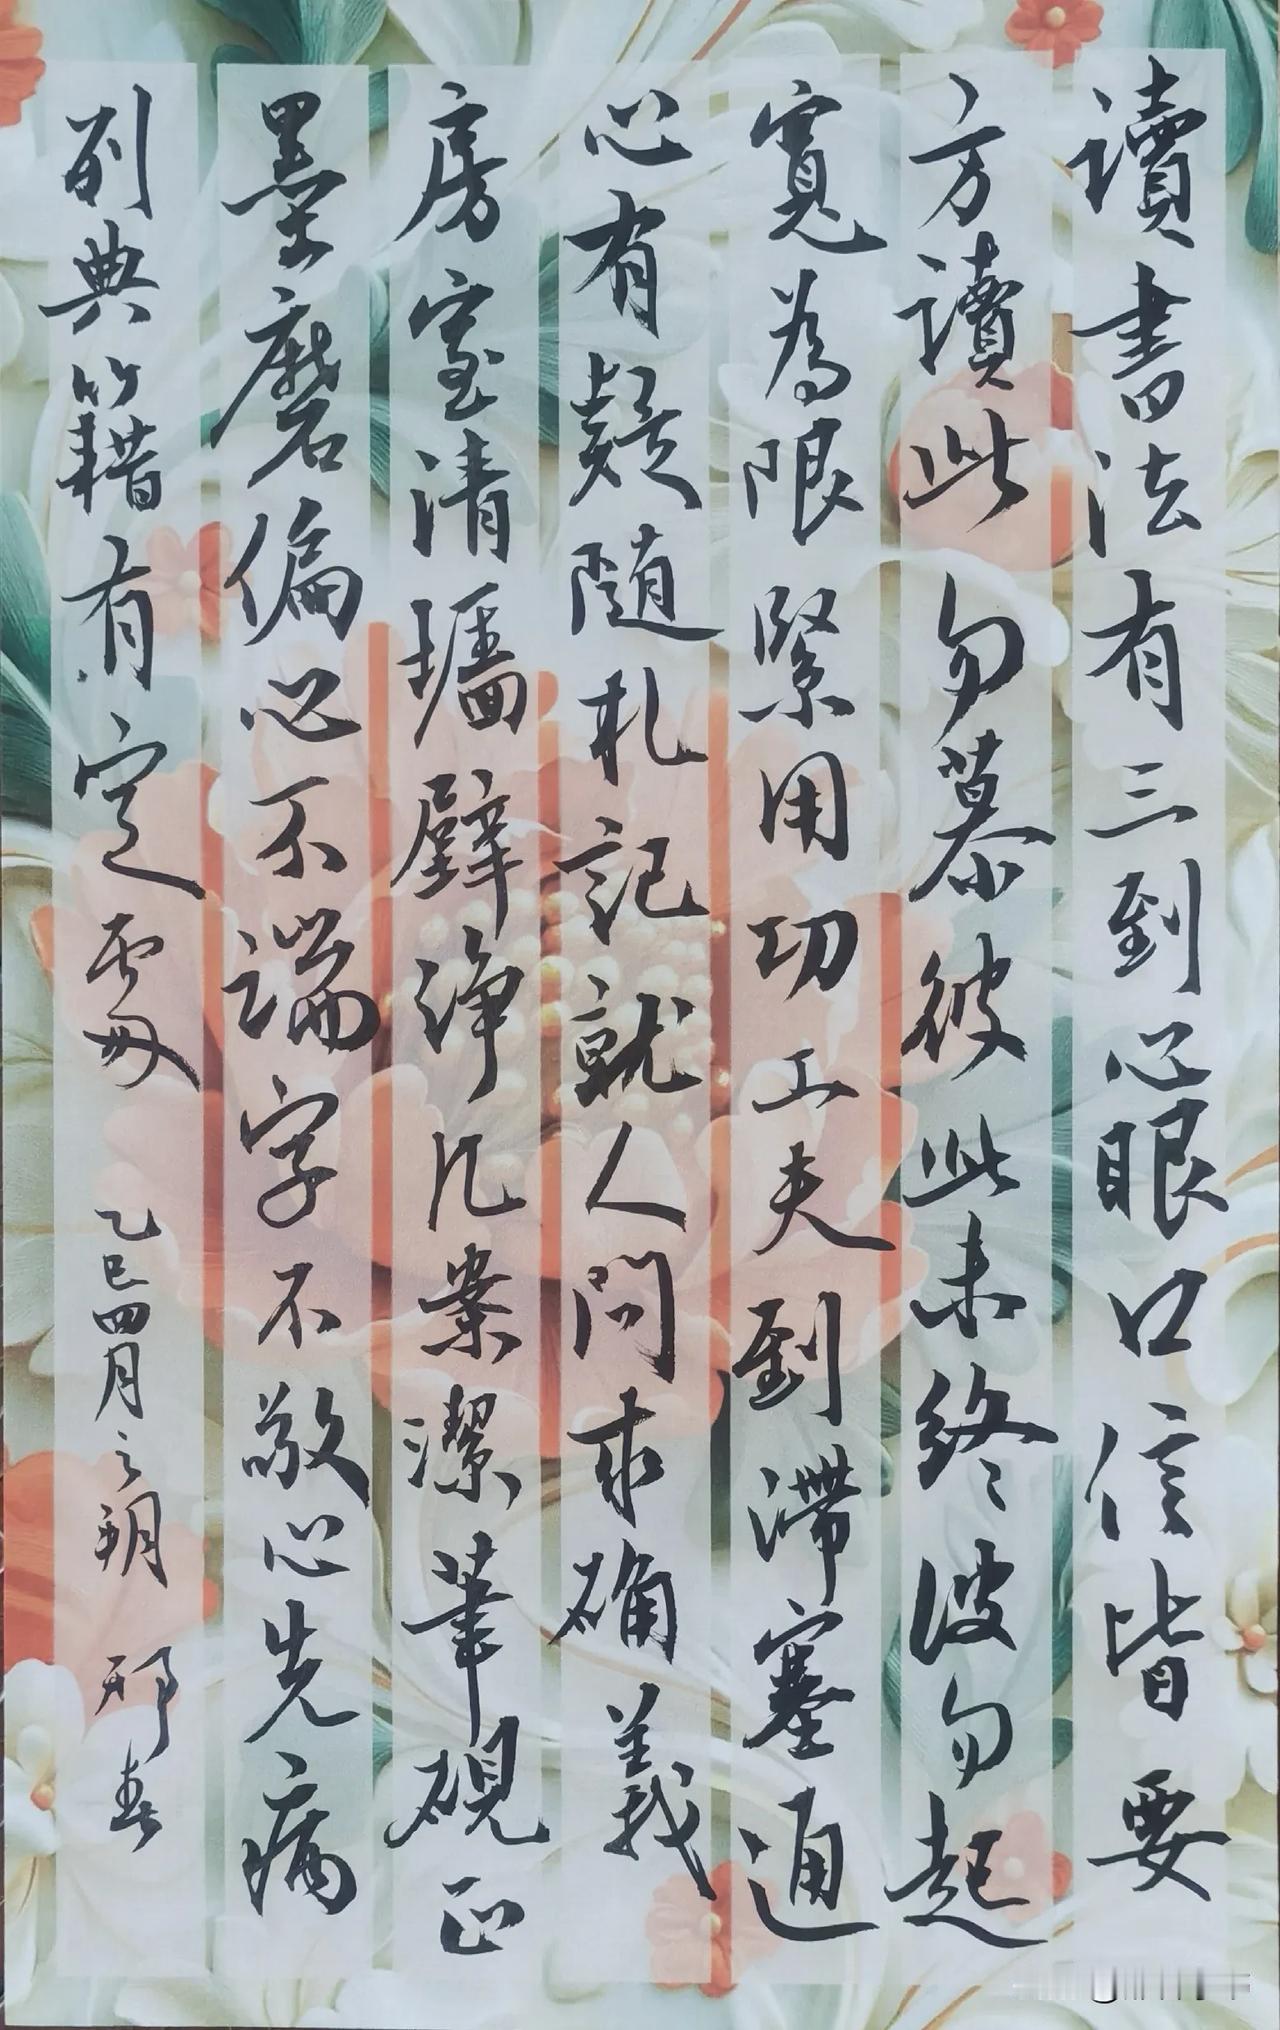 讀書法有三到心眼口信皆要
方讀此勿慕彼此未終彼勿起
寬為限緊用功工夫到滯塞通
心有疑随札記就人問求确義
房室清墙壁淨几案潔筆硯正
墨磨偏心不端字不敬心先病
列典籍有定处
乙巳四月之朔